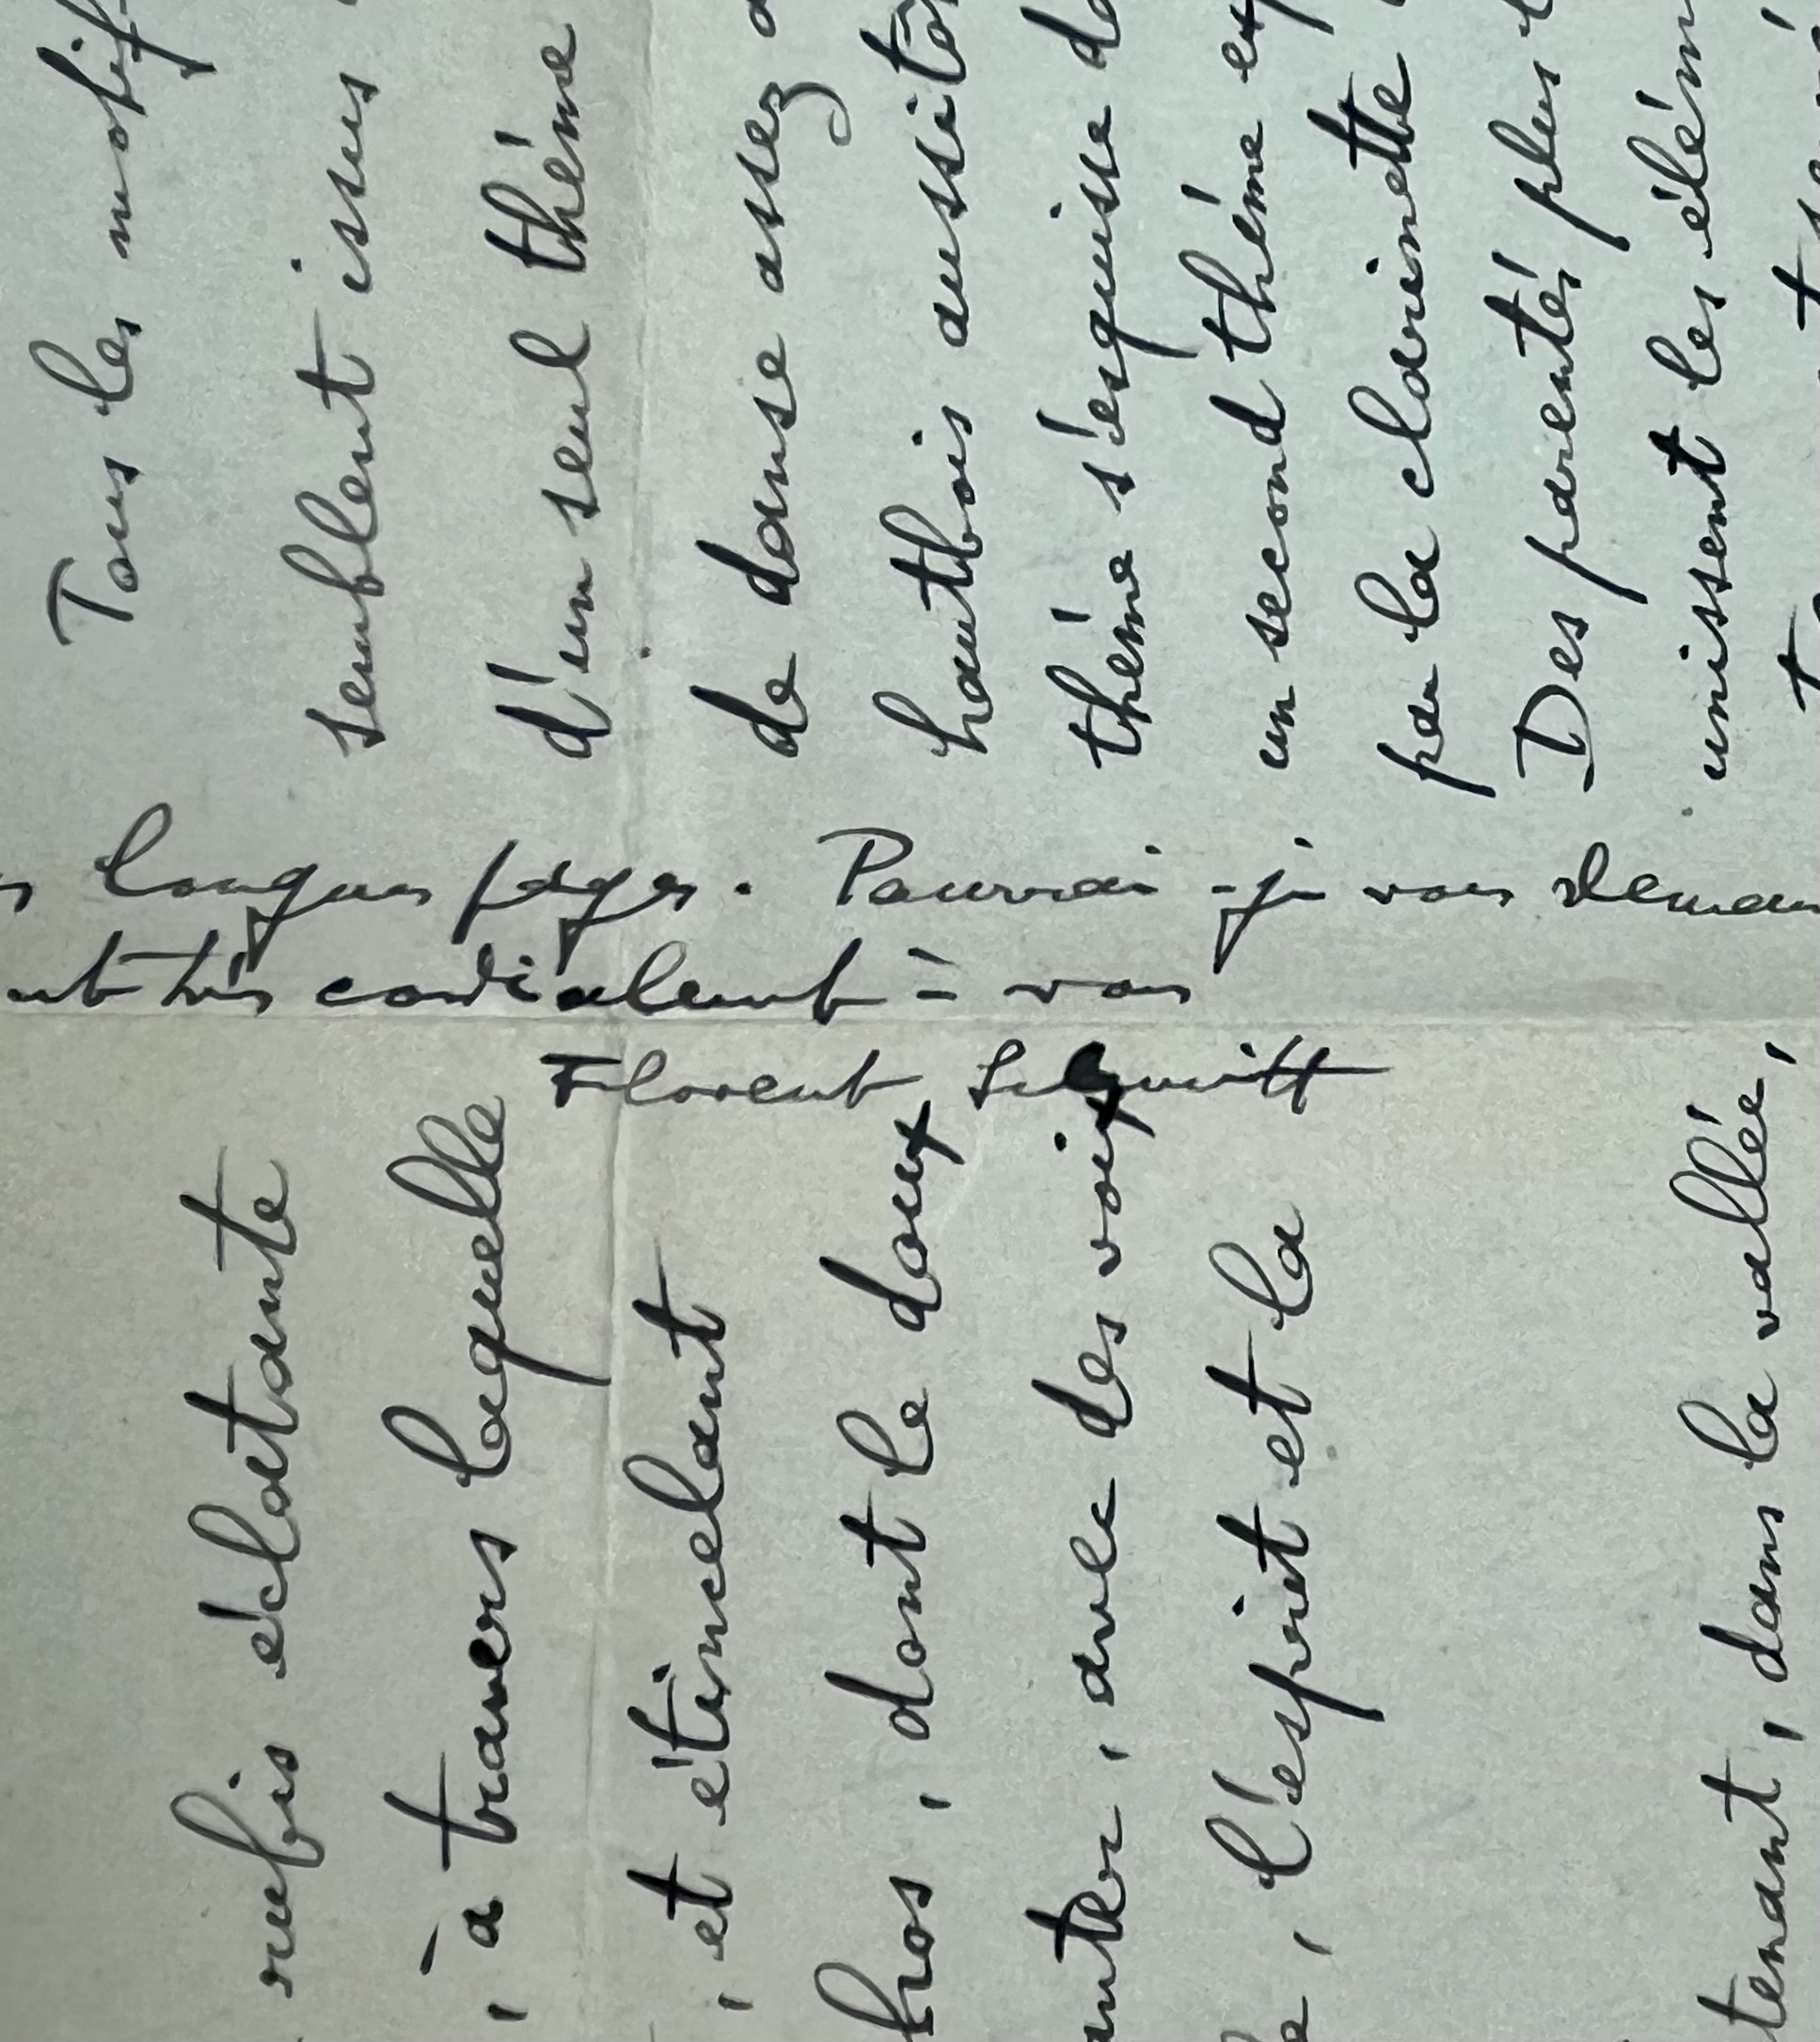 Tous les motif
semblent issus
d'un seul thème
de danse assez
hautbois aussitô
thème s'esquisse de
un second thème ex
par la clarinette
Des parentés plus
unissent les élém
longues pages. Pourrai-je vous deman
très cordialement à vous
Florent Schmitt
rubis éclatante
, à travers laquelle
, et étincelant
hos, dont le doux
anter, avec des voix
, l'esprit et la
tenant, dans la vallée,